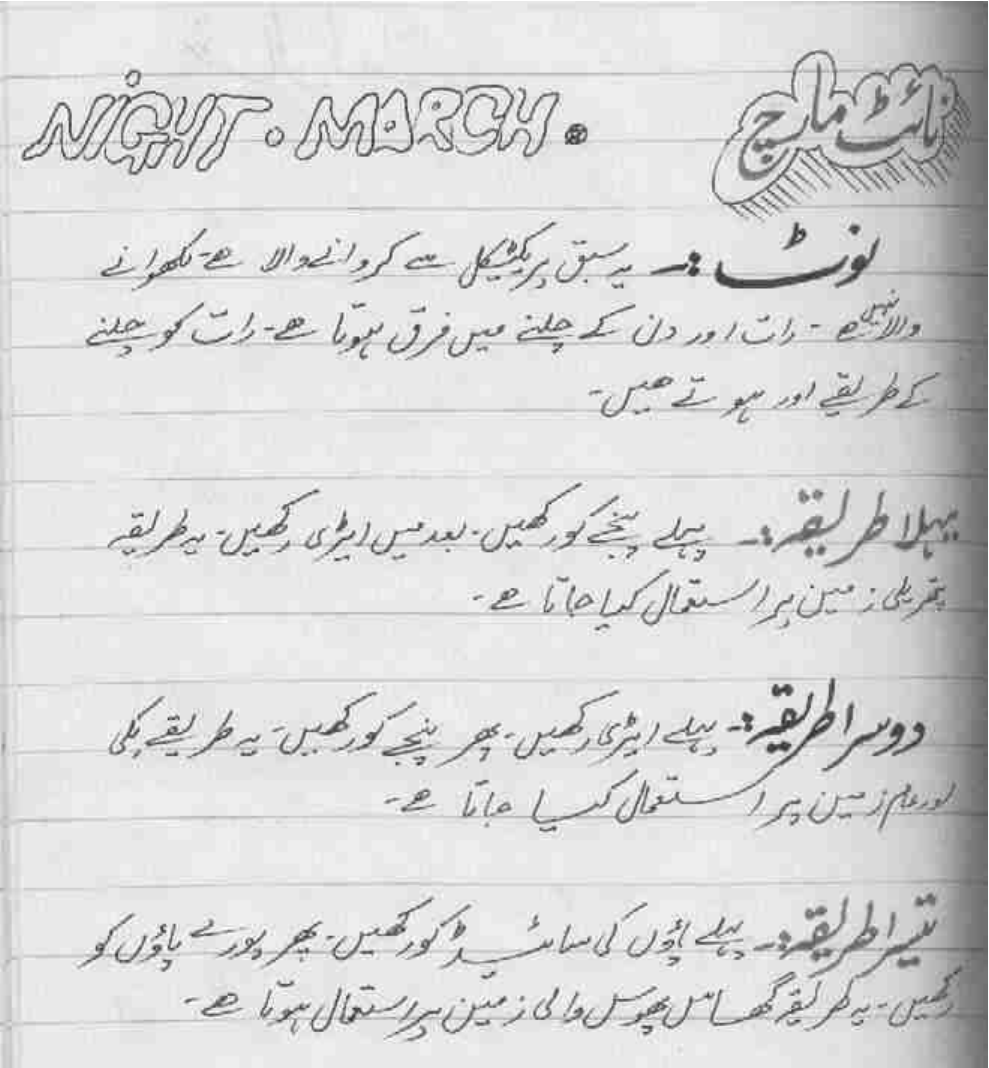 NIGHT. MARCH. نائٹ مارچ
نوٹ :۔ یہ سبق پریکٹیکل سے کروانے والا ھے۔ لکھوانے
والا نہیں ھے۔ رات اور دن کے چلنے میں فرق ہوتا ھے۔ رات کو چلنے
کے طریقے اور ہوتے ھیں۔
پہلا طریقہ :۔ پہلے پنجے کو رکھیں۔ بعد میں ایڑی رکھیں۔ یہ طریقہ
پتھریلی زمین پر استعمال کیا جاتا ھے۔
دوسرا طریقہ :۔ پہلے ایڑی رکھیں۔ پھر پنجے کو رکھیں۔ یہ طریقے پکی
اور عام زمین پر استعمال کیا جاتا ھے۔
تیسرا طریقہ :۔ پہلے پاؤں کی سائیڈ کو رکھیں۔ پھر پورے پاؤں کو
رکھیں۔ یہ طریقہ گھاس پھوس والی زمین پر استعمال ہوتا ھے۔